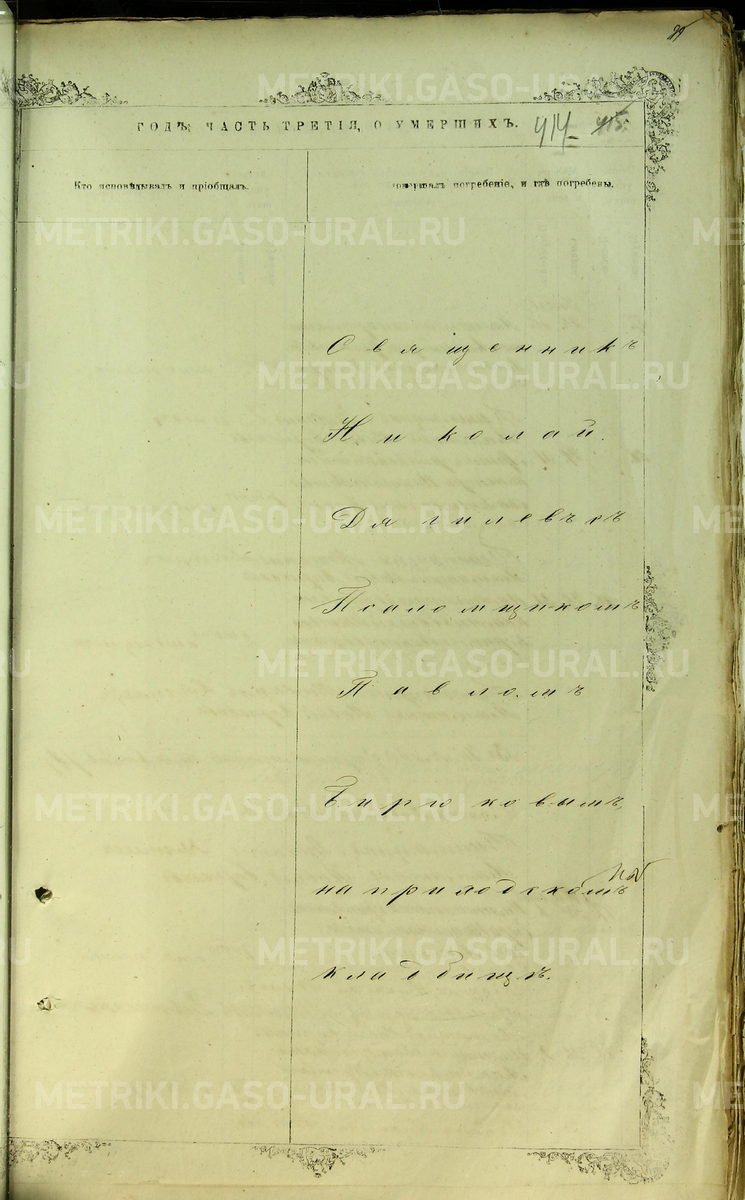 ГОДЪ, ЧАСТЬ ТРЕТІЯ, О УМЕРШИХЪ. 414
Кто исповѣдывалъ и пріобщалъ.
совершалъ погребеніе, и гдѣ погребены.
Священникъ
Николай
Дягилевъ съ
Псаломщикомъ
Павломъ
Бирюковымъ
на приходскомъ
кладбищѣ.
METRIKI.GASO-URAL.RU